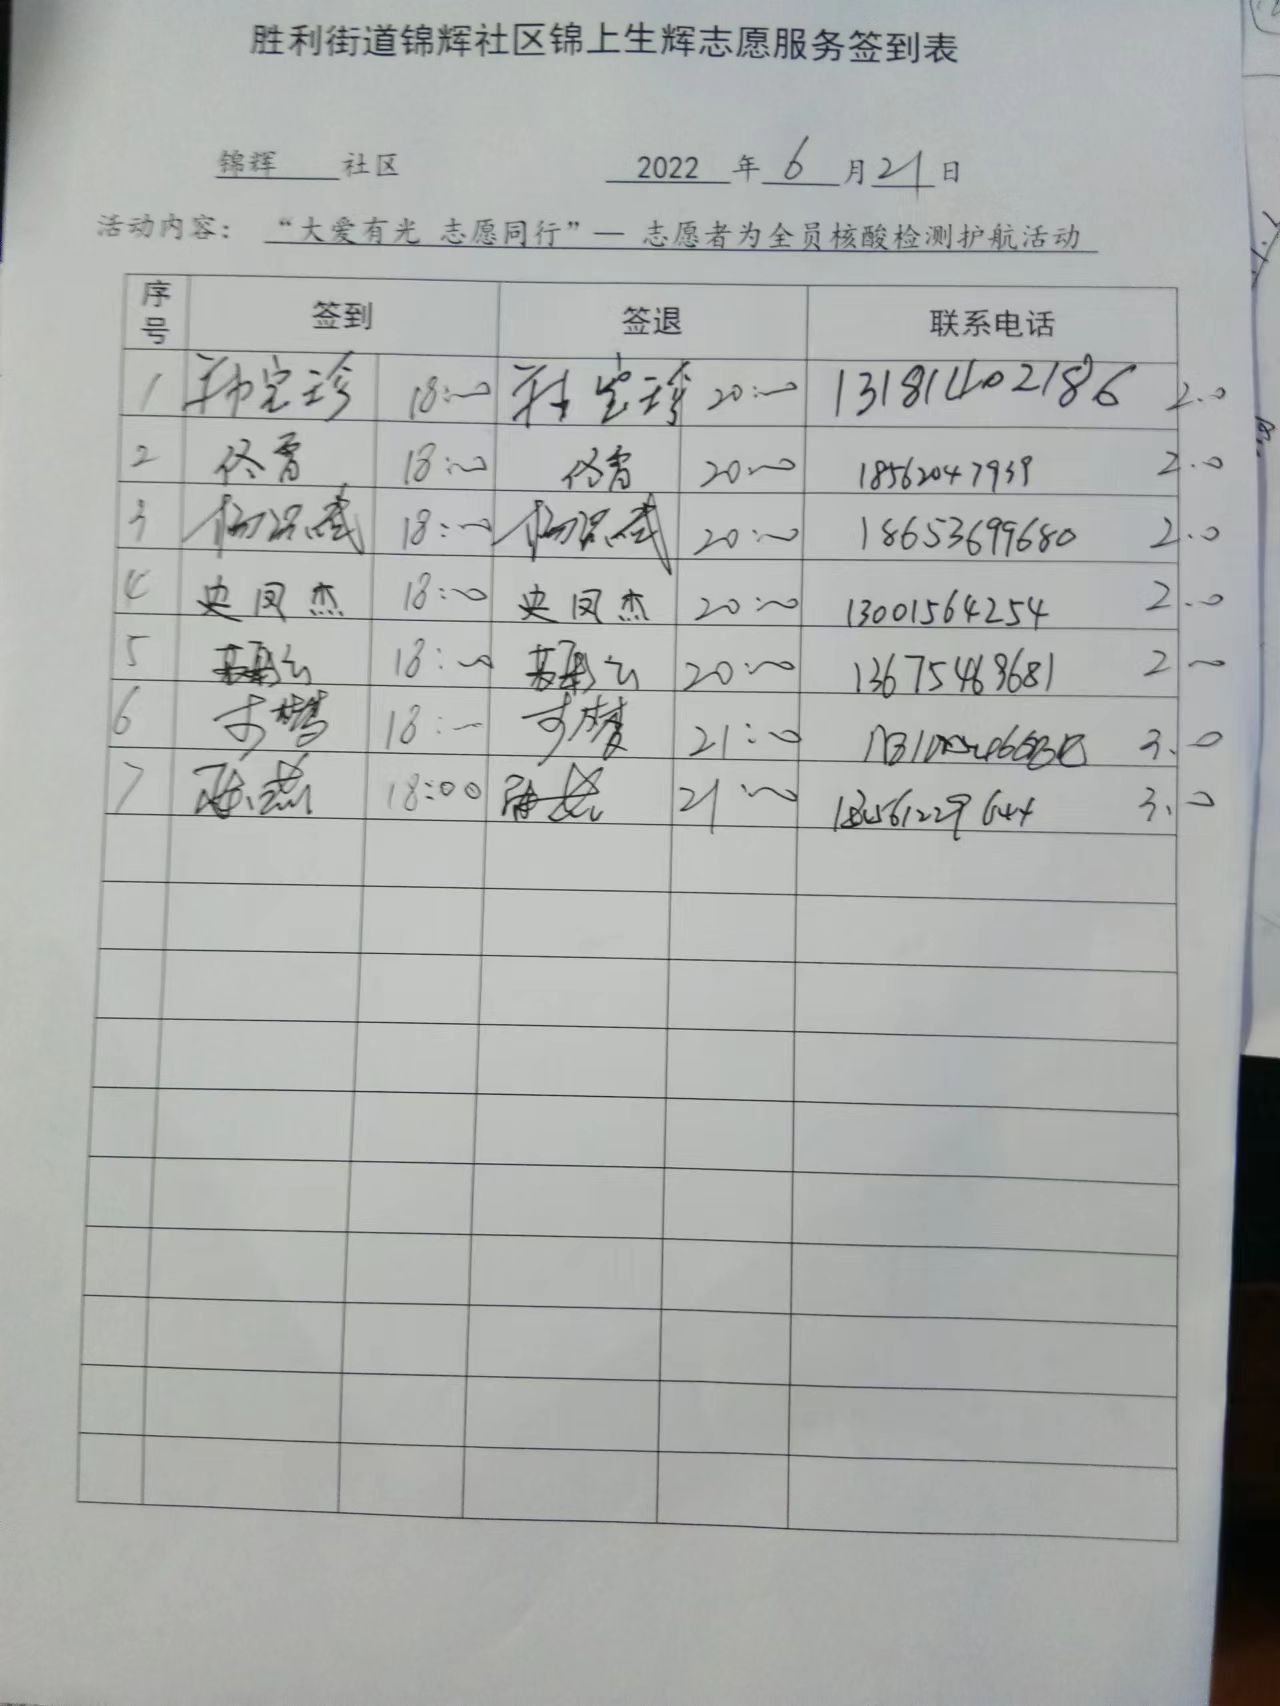 胜利街道锦辉社区锦上生辉志愿服务签到表
锦辉 社区 2022 年 6 月 21 日
活动内容： “大爱有光 志愿同行”— 志愿者为全员核酸检测护航活动
序号 签到 签退 联系电话
1 韩宝珍 18:00 韩宝珍 20:00 13181402186 2.0
2 佟雷 18:00 佟雷 20:00 18562047939 2.0
3 18:00 20:00 18653699680 2.0
4 史凤杰 18:00 史凤杰 20:00 13001564254 2.0
5 18:00 20:00 13675469681 2.0
6 18:00 21:00 3.0
7 陈燕 18:00 21:00 18561229644 3.0